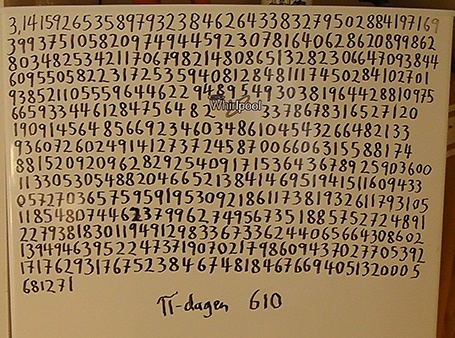 3,141592653589793238462643383279502884197169
39937510582097494459230781640628620899862
8034825342117067982148086513282306647093844
609550582231725359408128481117450284102701
938521105559644622948954930381964428810975
665933446128475648 Whirlpool 3378678316527120
19091456485669234603486104543266482133
93607260249141273724587006606315588174
8815209209628292540917153643678925903600
11330530548820466521384146951941511609433
057270365759591953092186117381932611793105
118548074462379962749567351885752724891
22793818301194912983367336244065664308602
13949463952247371907021798609437027705392
171762931767523846748184676694051320005
681271
π-dagen 610